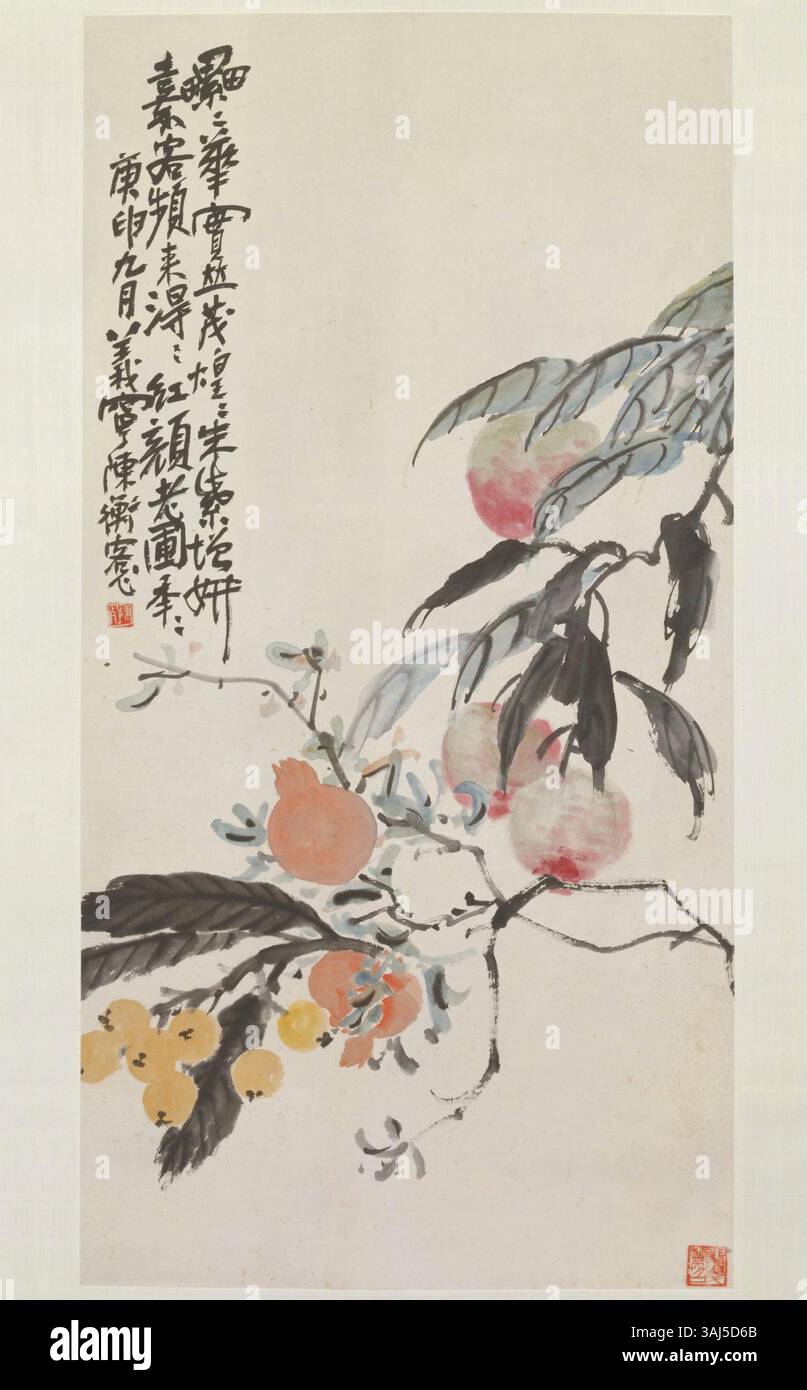 纍〻華實並茂煌〻朱紫增妍
嘉客頻來得〻紅顏老圃年〻
庚申九月義寧陳衡愙
a
alamy
a
alamy
a
alamy
a
alamy
a
alamy
a
a
alamy
Image ID: 3AJ5D6B
www.alamy.com